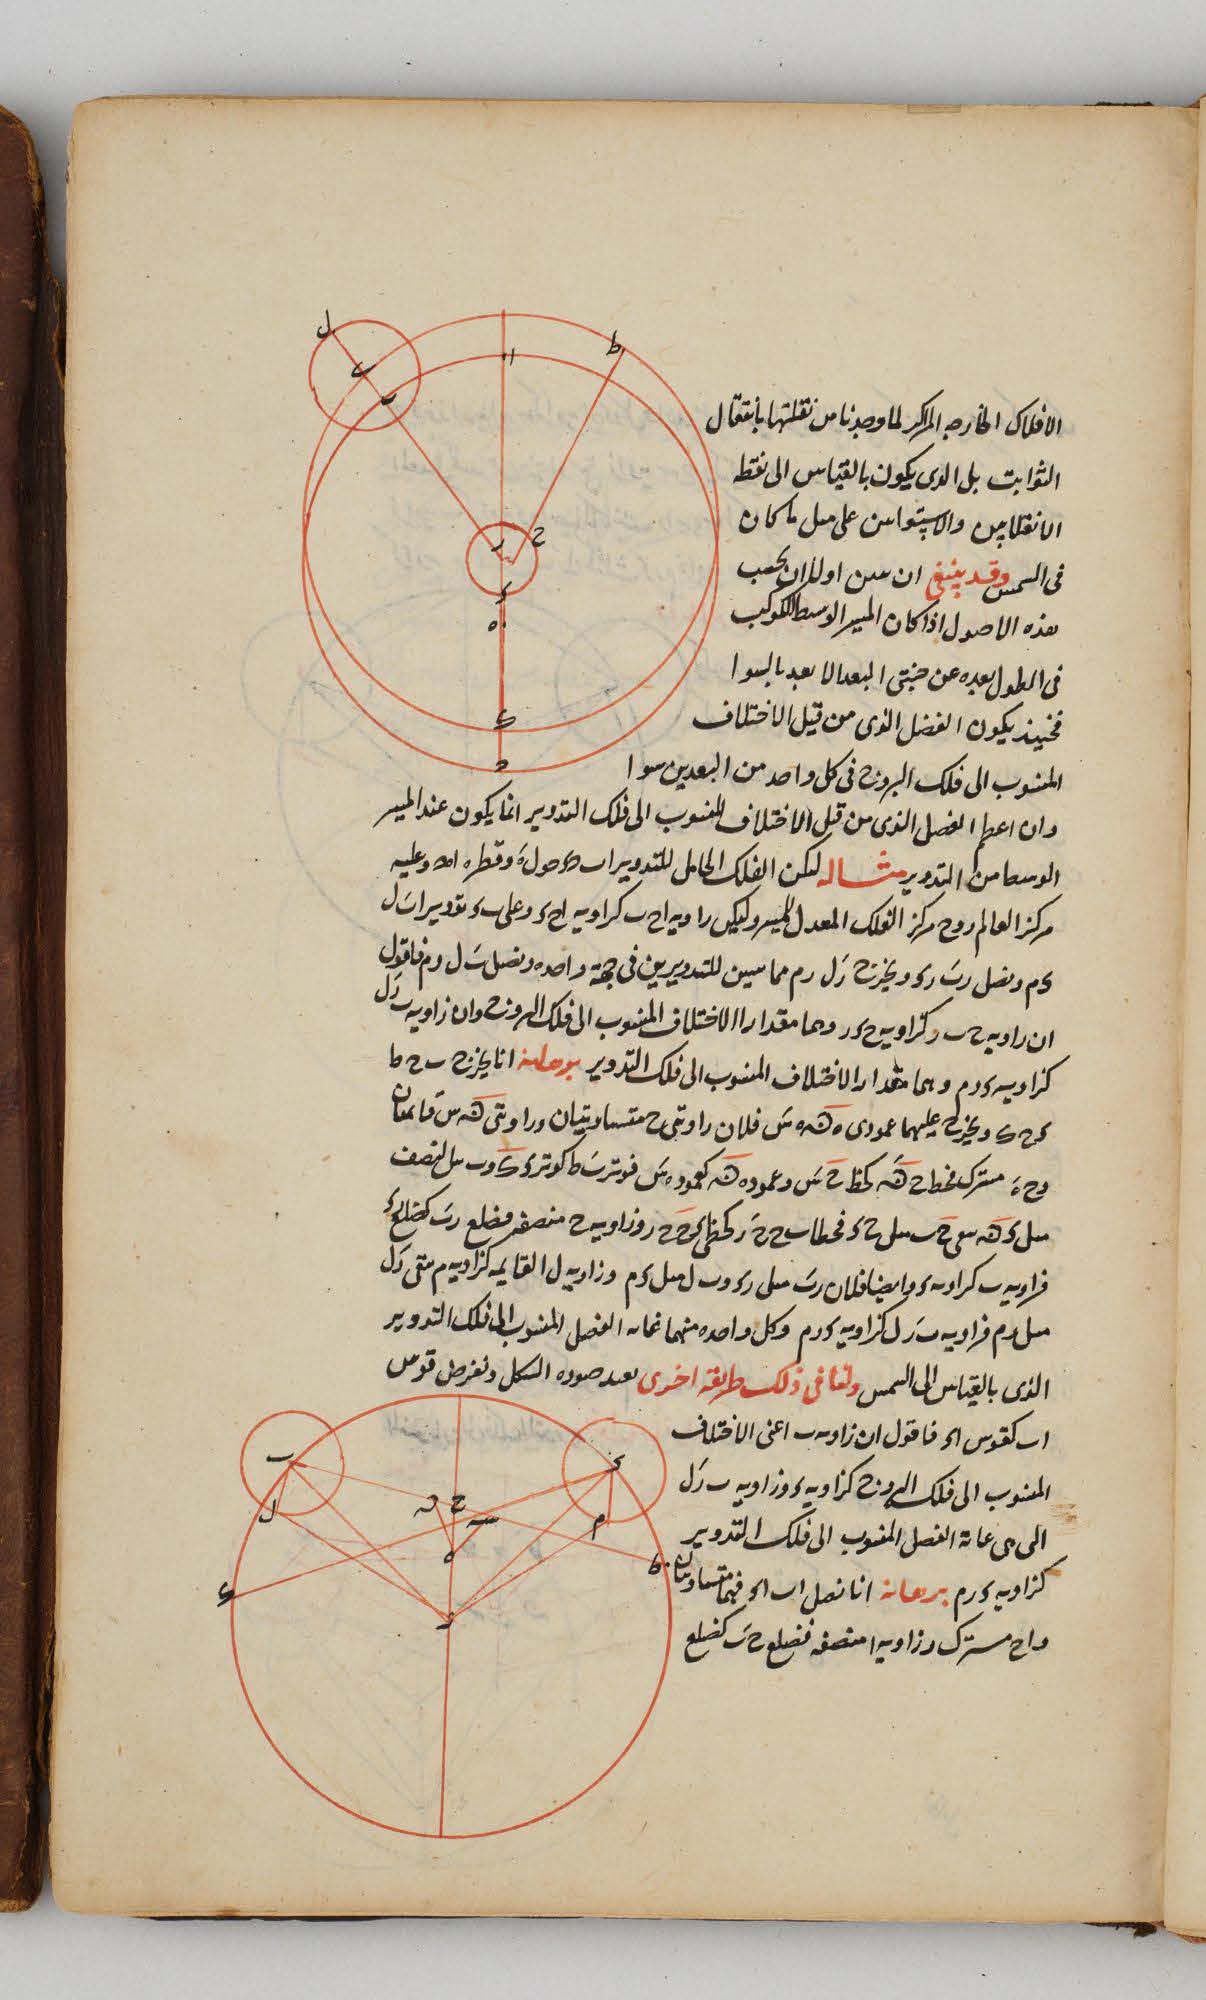 الافلاك الخارجه المراكز لما وجدنا من نقلتها بانتقال
الثوابت بل الذى يكون بالقياس الى نقطه
الانقلابين والاستوايين على مثل ما كان
فى الشمس وقد ينبغى ان نبين اولا ان بحسب
هذه الاصول اذا كان المسير الوسط للكوكب
فى الطول بعده عن جنبتى البعد الابعد بالسوا
فحينئذ يكون الفضل الذى من قبل الاختلاف
المنسوب الى فلك البروج فى كل واحد من البعدين سوا
وان اعظم الفضل الذى من قبل الاختلاف المنسوب الى فلك التدوير انما يكون عند المسير
الوسط من التدوير مثاله ليكن الفلك الحامل للتدوير اب حول ه وقطره ا وعليه
مركز العالم ر وح مركز الفلك المعدل للمسير وليكن زاويه اح ب كزاويه اح ى وعلى ب ى تدويرا ب ل
ى م ونصل رب رى ويخرج رل رم مماسين للتدويرين فى جهة واحده ونصل ب ل ى م فاقول
ان زاويه ح ب ر كزاويه ح ى ر وهما مقدارا الاختلاف المنسوب الى فلك البروج وان زاويه ب رل
كزاويه ى رم وهما مقدارا الاختلاف المنسوب الى فلك التدوير برهانه انا يخرج ب ح ط
ى ح ك ويخرج عليهما عمودى ه ه س فلان زاويتى ح متساويتان وزاويتى س قايمتان
وح ه مشترك فخطا ح كخط ح س وعمود ه كعمود ه س فوتر ب ط كوتر ى ك وب مثل النصف
مثل ى يبقى ح ب مثل ح ى فخطا ب ح ح ر كخطى ى ح ح ر وزاويه ح منصفه فضلع رب كضلع رى
فزاويه ب كزاويه ى وايضا فلان رب مثل رى وب ل مثل ى م وزاويه ل القايمه كزاويه م يبقى رل
مثل رم فزاويه ب رل كزاويه ى رم وكل واحده منهما غايه الفضل المنسوب الى فلك التدوير
الذى بالقياس الى الشمس ولنا فى ذلك طريقه اخرى نعيد صوره الشكل ونفرض قوس
اب كقوس اى فاقول ان زاويه ب اعنى الاختلاف
المنسوب الى فلك البروج كزاويه ى وزاويه ب رل
التى هى غاية الفضل المنسوب الى فلك التدوير
كزاويه ى رم برهانه انا نصل اب اى فهما متساويان
واح مشترك وزاويه ا منصفه فضلع ح ب كضلع
ل
ط
ى
ا
ب
ر
ح
ه
ك
د
ب
ى
ل
ح
م
ه
ط
ك
ر